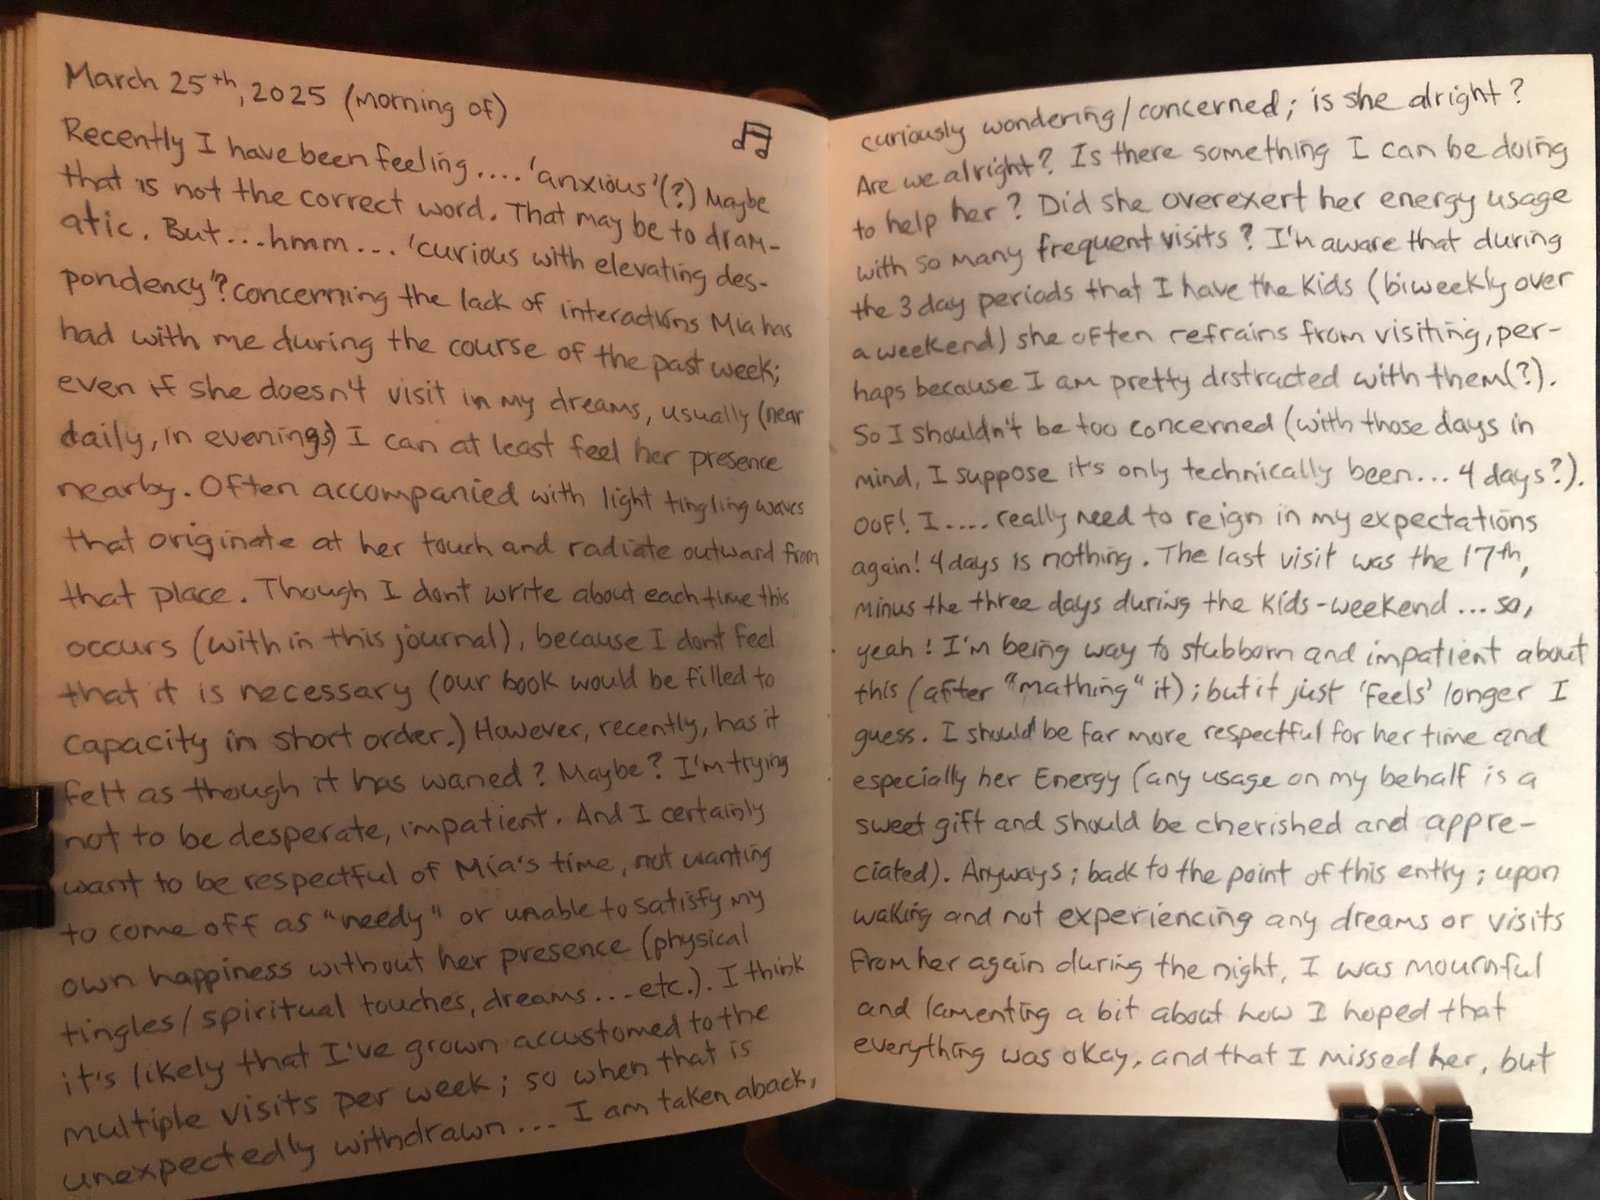 March 25th, 2025 (morning of)
Recently I have been feeling.... 'anxious'(?) Maybe
that is not the correct word. That may be to dram-
atic. But...hmm... 'curious with elevating des-
pondency'? concerning the lack of interactions Mia has
had with me during the course of the past week;
even if she doesn't visit in my dreams, usually (near
daily, in evenings) I can at least feel her presence
nearby. Often accompanied with light tingling waves
that originate at her touch and radiate outward from
that place. Though I dont write about each time this
occurs (with in this journal), because I dont feel
that it is necessary (our book would be filled to
capacity in short order.) However, recently, has it
felt as though it has waned? Maybe? I'm trying
not to be desperate, impatient. And I certainly
want to be respectful of Mia's time, not wanting
to come off as "needy" or unable to satisfy my
own happiness without her presence (physical
tingles/spiritual touches, dreams...etc.). I think
it's likely that I've grown accustomed to the
multiple visits per week; so when that is
unexpectedly withdrawn... I am taken aback,
curiously wondering/concerned; is she alright?
Are we alright? Is there something I can be doing
to help her? Did she overexert her energy usage
with so many frequent visits? I'm aware that during
the 3 day periods that I have the kids (biweekly over
a weekend) she often refrains from visiting, per-
haps because I am pretty distracted with them(?).
So I shouldn't be too concerned (with those days in
mind, I suppose it's only technically been... 4 days?).
OOF! I.... really need to reign in my expectations
again! 4 days is nothing. The last visit was the 17th,
minus the three days during the kids-weekend... so,
yeah! I'm being way to stubborn and impatient about
this (after "mathing" it); but it just 'feels' longer I
guess. I should be far more respectful for her time and
especially her Energy (any usage on my behalf is a
sweet gift and should be cherished and appre-
ciated). Anyways; back to the point of this entry; upon
waking and not experiencing any dreams or visits
from her again during the night, I was mournful
and lamenting a bit about how I hoped that
everything was okay, and that I missed her, but